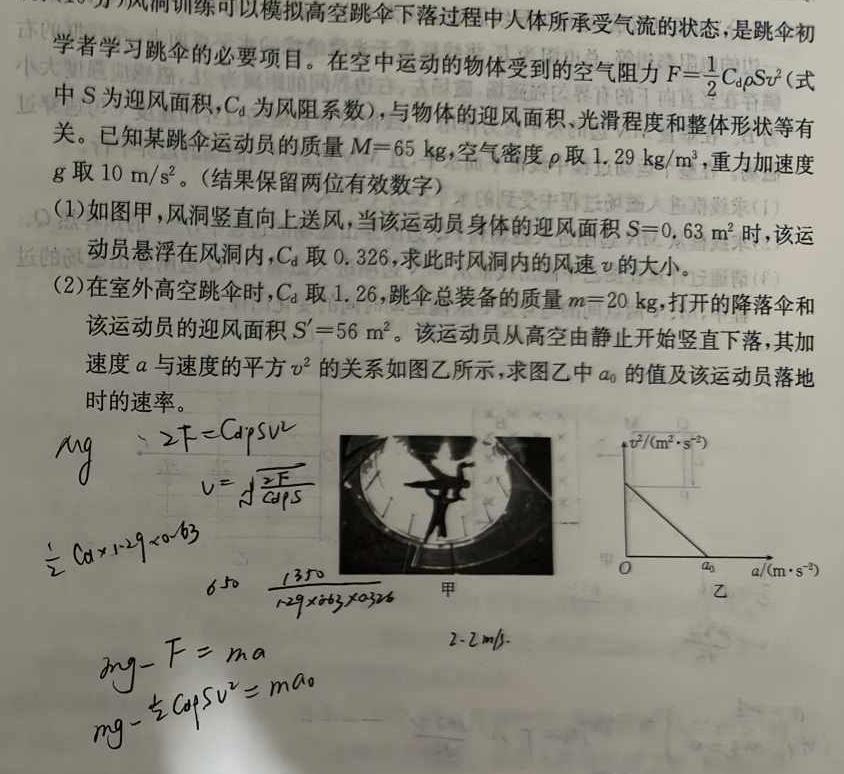 分)风洞训练可以模拟高空跳伞下落过程中人体所承受气流的状态,是跳伞初
学者学习跳伞的必要项目。在空中运动的物体受到的空气阻力 F=1/2 CdρSv²(式
中 S 为迎风面积,Cd 为风阻系数),与物体的迎风面积、光滑程度和整体形状等有
关。已知某跳伞运动员的质量 M=65 kg,空气密度 ρ 取 1.29 kg/m³,重力加速度
g 取 10 m/s²。(结果保留两位有效数字)
(1)如图甲,风洞竖直向上送风,当该运动员身体的迎风面积 S=0.63 m² 时,该运
动员悬浮在风洞内,Cd 取 0.326,求此时风洞内的风速 v 的大小。
(2)在室外高空跳伞时,Cd 取 1.26,跳伞总装备的质量 m=20 kg,打开的降落伞和
该运动员的迎风面积 S′=56 m²。该运动员从高空由静止开始竖直下落,其加
速度 a 与速度的平方 v² 的关系如图乙所示,求图乙中 a₀ 的值及该运动员落地
时的速率。
Mg 2F=CdρSv²
v=√(2F/CdρS)
1/2 Cd×1.29×0.63
650 1350/1.29×0.63×0.326
v²/(m²·s⁻²)
O a₀ a/(m·s⁻²)
甲 乙
2.2 m/s.
mg-F=ma
mg-1/2 CdρSv²=ma₀